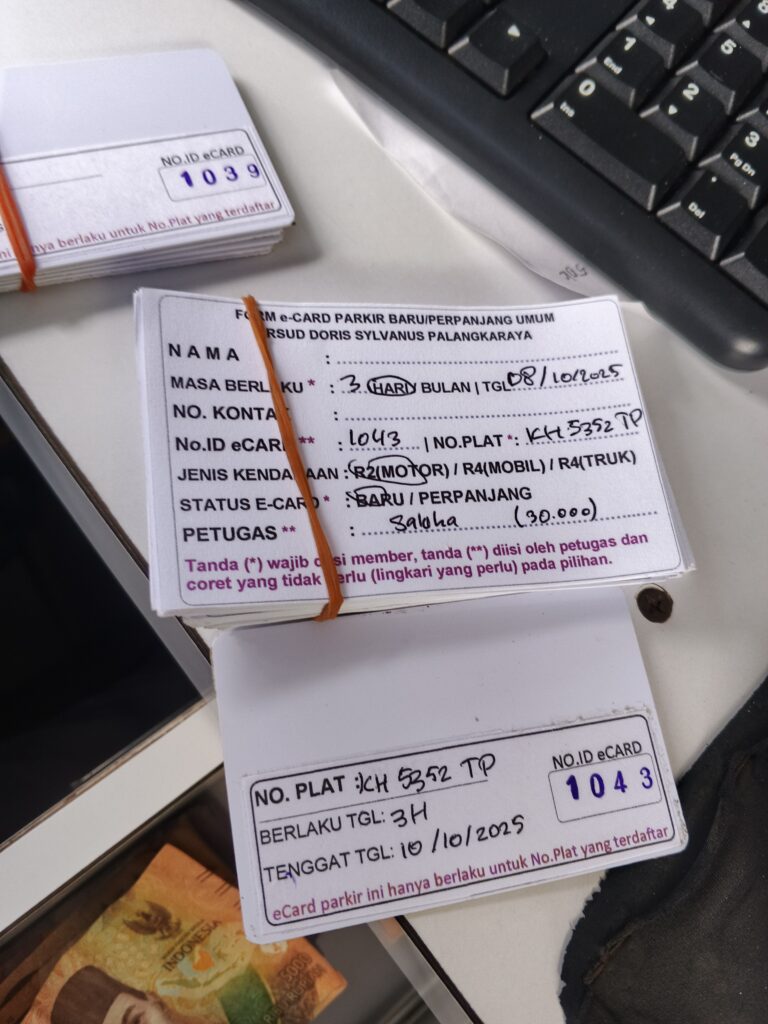 NO.ID eCARD
1039
hanya berlaku untuk No.Plat yang terdaftar
FORM e-CARD PARKIR BARU/PERPANJANG UMUM
RSUD DORIS SYLVANUS PALANGKARAYA
NAMA :
MASA BERLAKU * : 3 HARI/ BULAN | TGL 08/10/2025
NO. KONTAK :
No.ID eCARD ** : 1043 | NO.PLAT *: KH 5352 TP
JENIS KENDARAAN : R2(MOTOR) / R4(MOBIL) / R4(TRUK)
STATUS E-CARD * : BARU / PERPANJANG
PETUGAS ** : Salsha (30.000)
Tanda (*) wajib diisi member, tanda (**) diisi oleh petugas dan
coret yang tidak perlu (lingkari yang perlu) pada pilihan.
NO. PLAT : KH 5352 TP
NO.ID eCARD
1043
BERLAKU TGL: 3H
TENGGAT TGL: 10/10/2025
eCard parkir ini hanya berlaku untuk No.Plat yang terdaftar
INDONESIA
5000
0
Ins
1
End
2
3
Pg Dn
4
5
Del